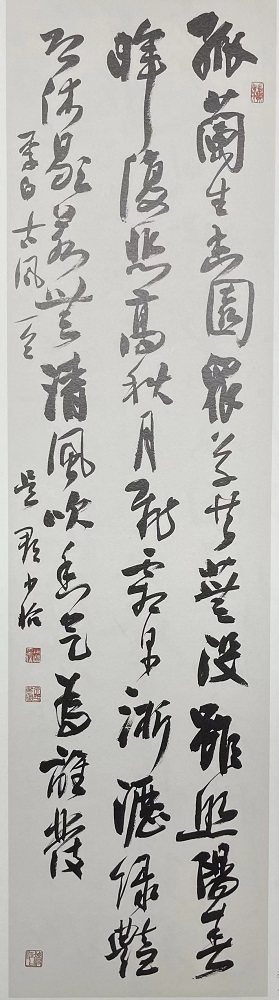 孤蘭生幽園眾草共蕪沒雖照陽春
暉復悲高秋月飛霜早淅瀝綠豔
恐休歇若無清風吹香氣為誰發
李白古風一首